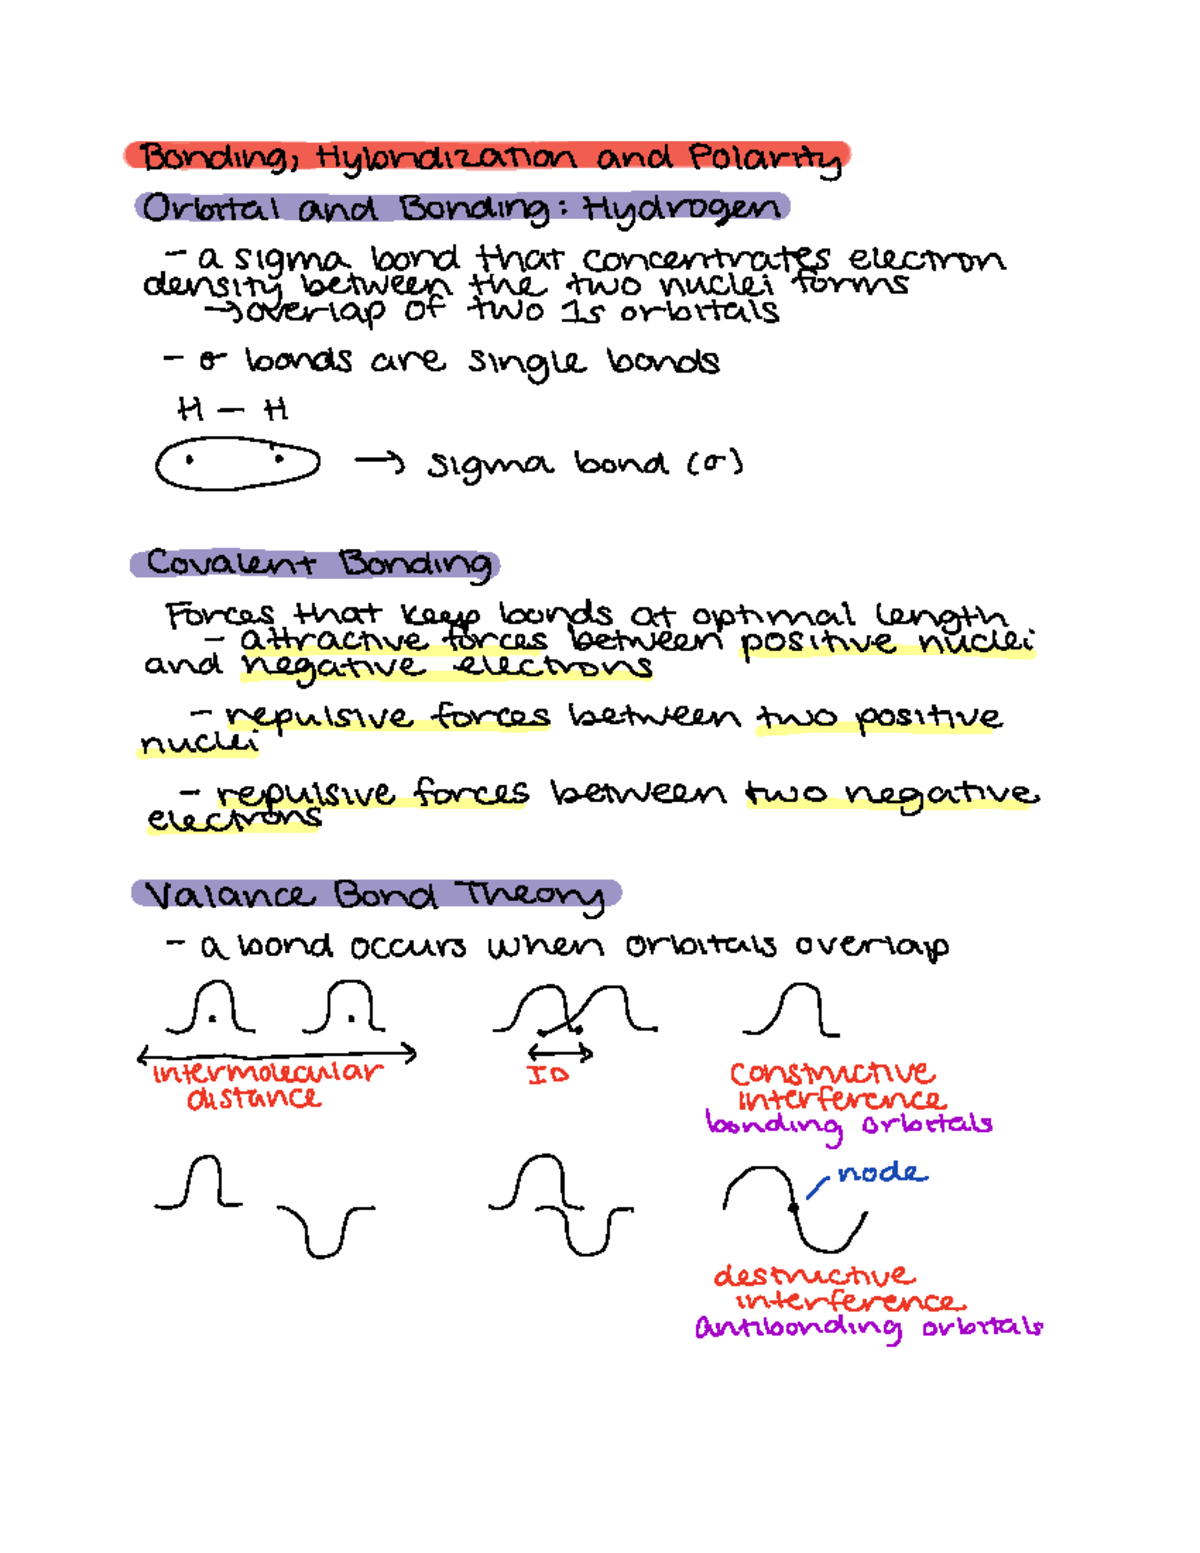 Bonding, Hybridization and Polarity
Orbital and Bonding: Hydrogen
- a sigma bond that concentrates electron
density between the two nuclei forms
→ overlap of two 1s orbitals
- σ bonds are single bonds
H — H
→ sigma bond (σ)
Covalent Bonding
Forces that keep bonds at optimal length
- attractive forces between positive nuclei
and negative electrons
- repulsive forces between two positive
nuclei
- repulsive forces between two negative
electrons
Valance Bond Theory
- a bond occurs when orbitals overlap
intermolecular
distance
ID
constructive
interference
bonding orbitals
node
destructive
interference
antibonding orbitals